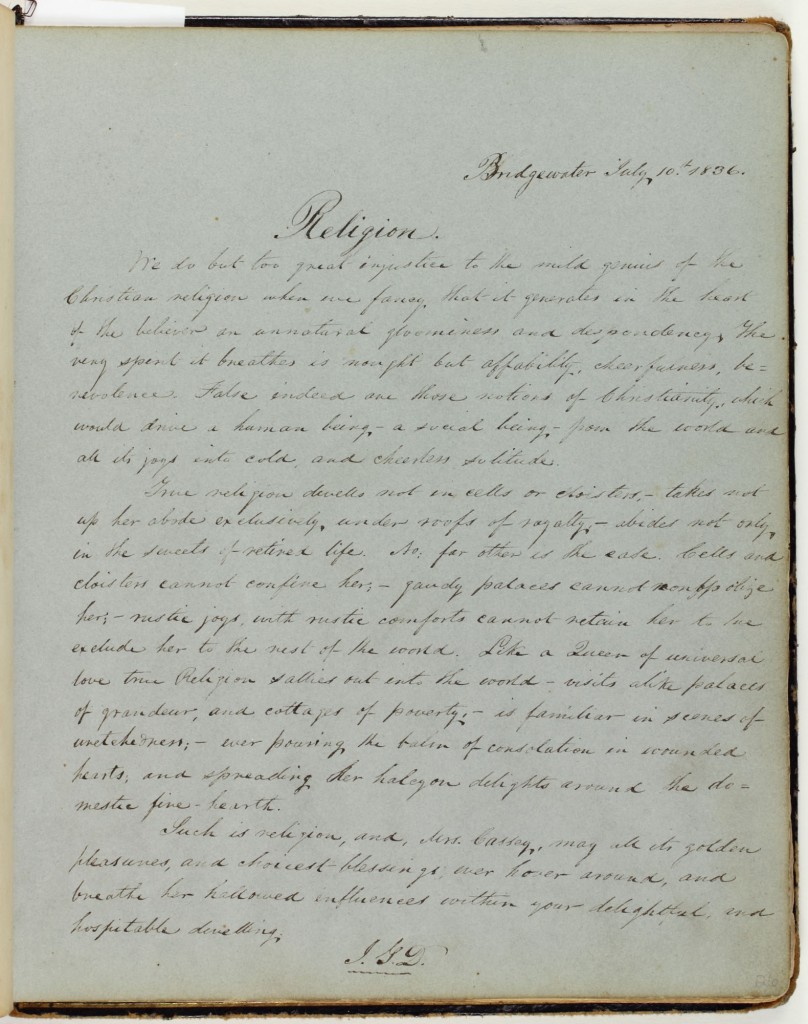 Bridgewater July 10th 1836.
Religion.
We do but too great injustice to the mild genius of the
Christian religion when we fancy, that it generates in the heart
of the believer an unnatural gloominess and despondency. The
very spirit it breathes is nought but affability, cheerfulness, be=
nevolence. False indeed are those notions of Christianity, which
would drive a human being,- a social being,- from the world and
all its joys into cold, and cheerless solitude.
True religion dwells not in cells or cloisters,- takes not
up her abode exclusively, under roofs of royalty;- abides not only,
in the sweets of retired life. No; far other is the case. Cells and
cloisters cannot confine her;- gaudy palaces cannot monopolize
her;- rustic joys, with rustic comforts cannot retain her to the
exclude her to the rest of the world. Like a Queen of universal
love true Religion sallies out into the world - visits alike palaces
of grandeur, and cottages of poverty,- is familiar in scenes of
wretchedness;- ever pouring the balm of consolation in wounded
hearts, and spreading her halcyon delights around the do=
mestic fire-hearth.
Such is religion, and, Mrs. Cassey, may all its golden
pleasures, and choicest blessings, ever hover around, and
breathe her hallowed influences within your delightful, and
hospitable dwelling.
J.G.D.